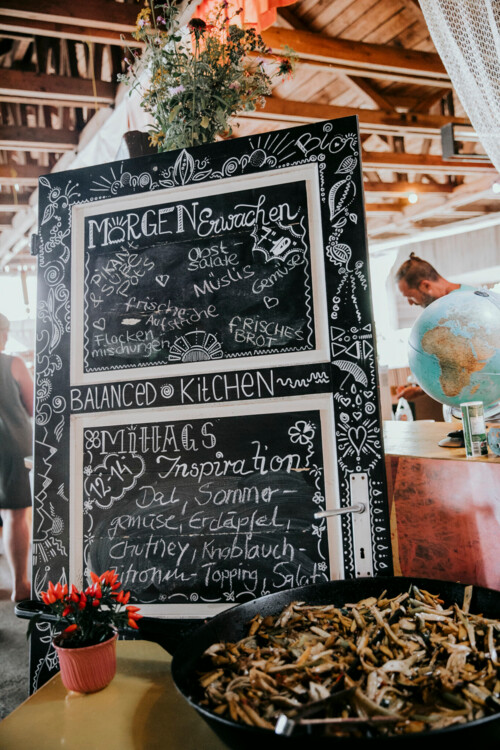 MORGENErwachen
Bio
Obst
salate
Müslis
Gemüse
frische
Aufstriche
Flocken
mischungen
frisches
BROT
BALANCED KITCHEN
MITTAGS
12-14
Inspiration
Dal, Sommer-
gemüse, Erdäpfel,
Chutney, Knoblauch-
Zitronen-Topping, Salat